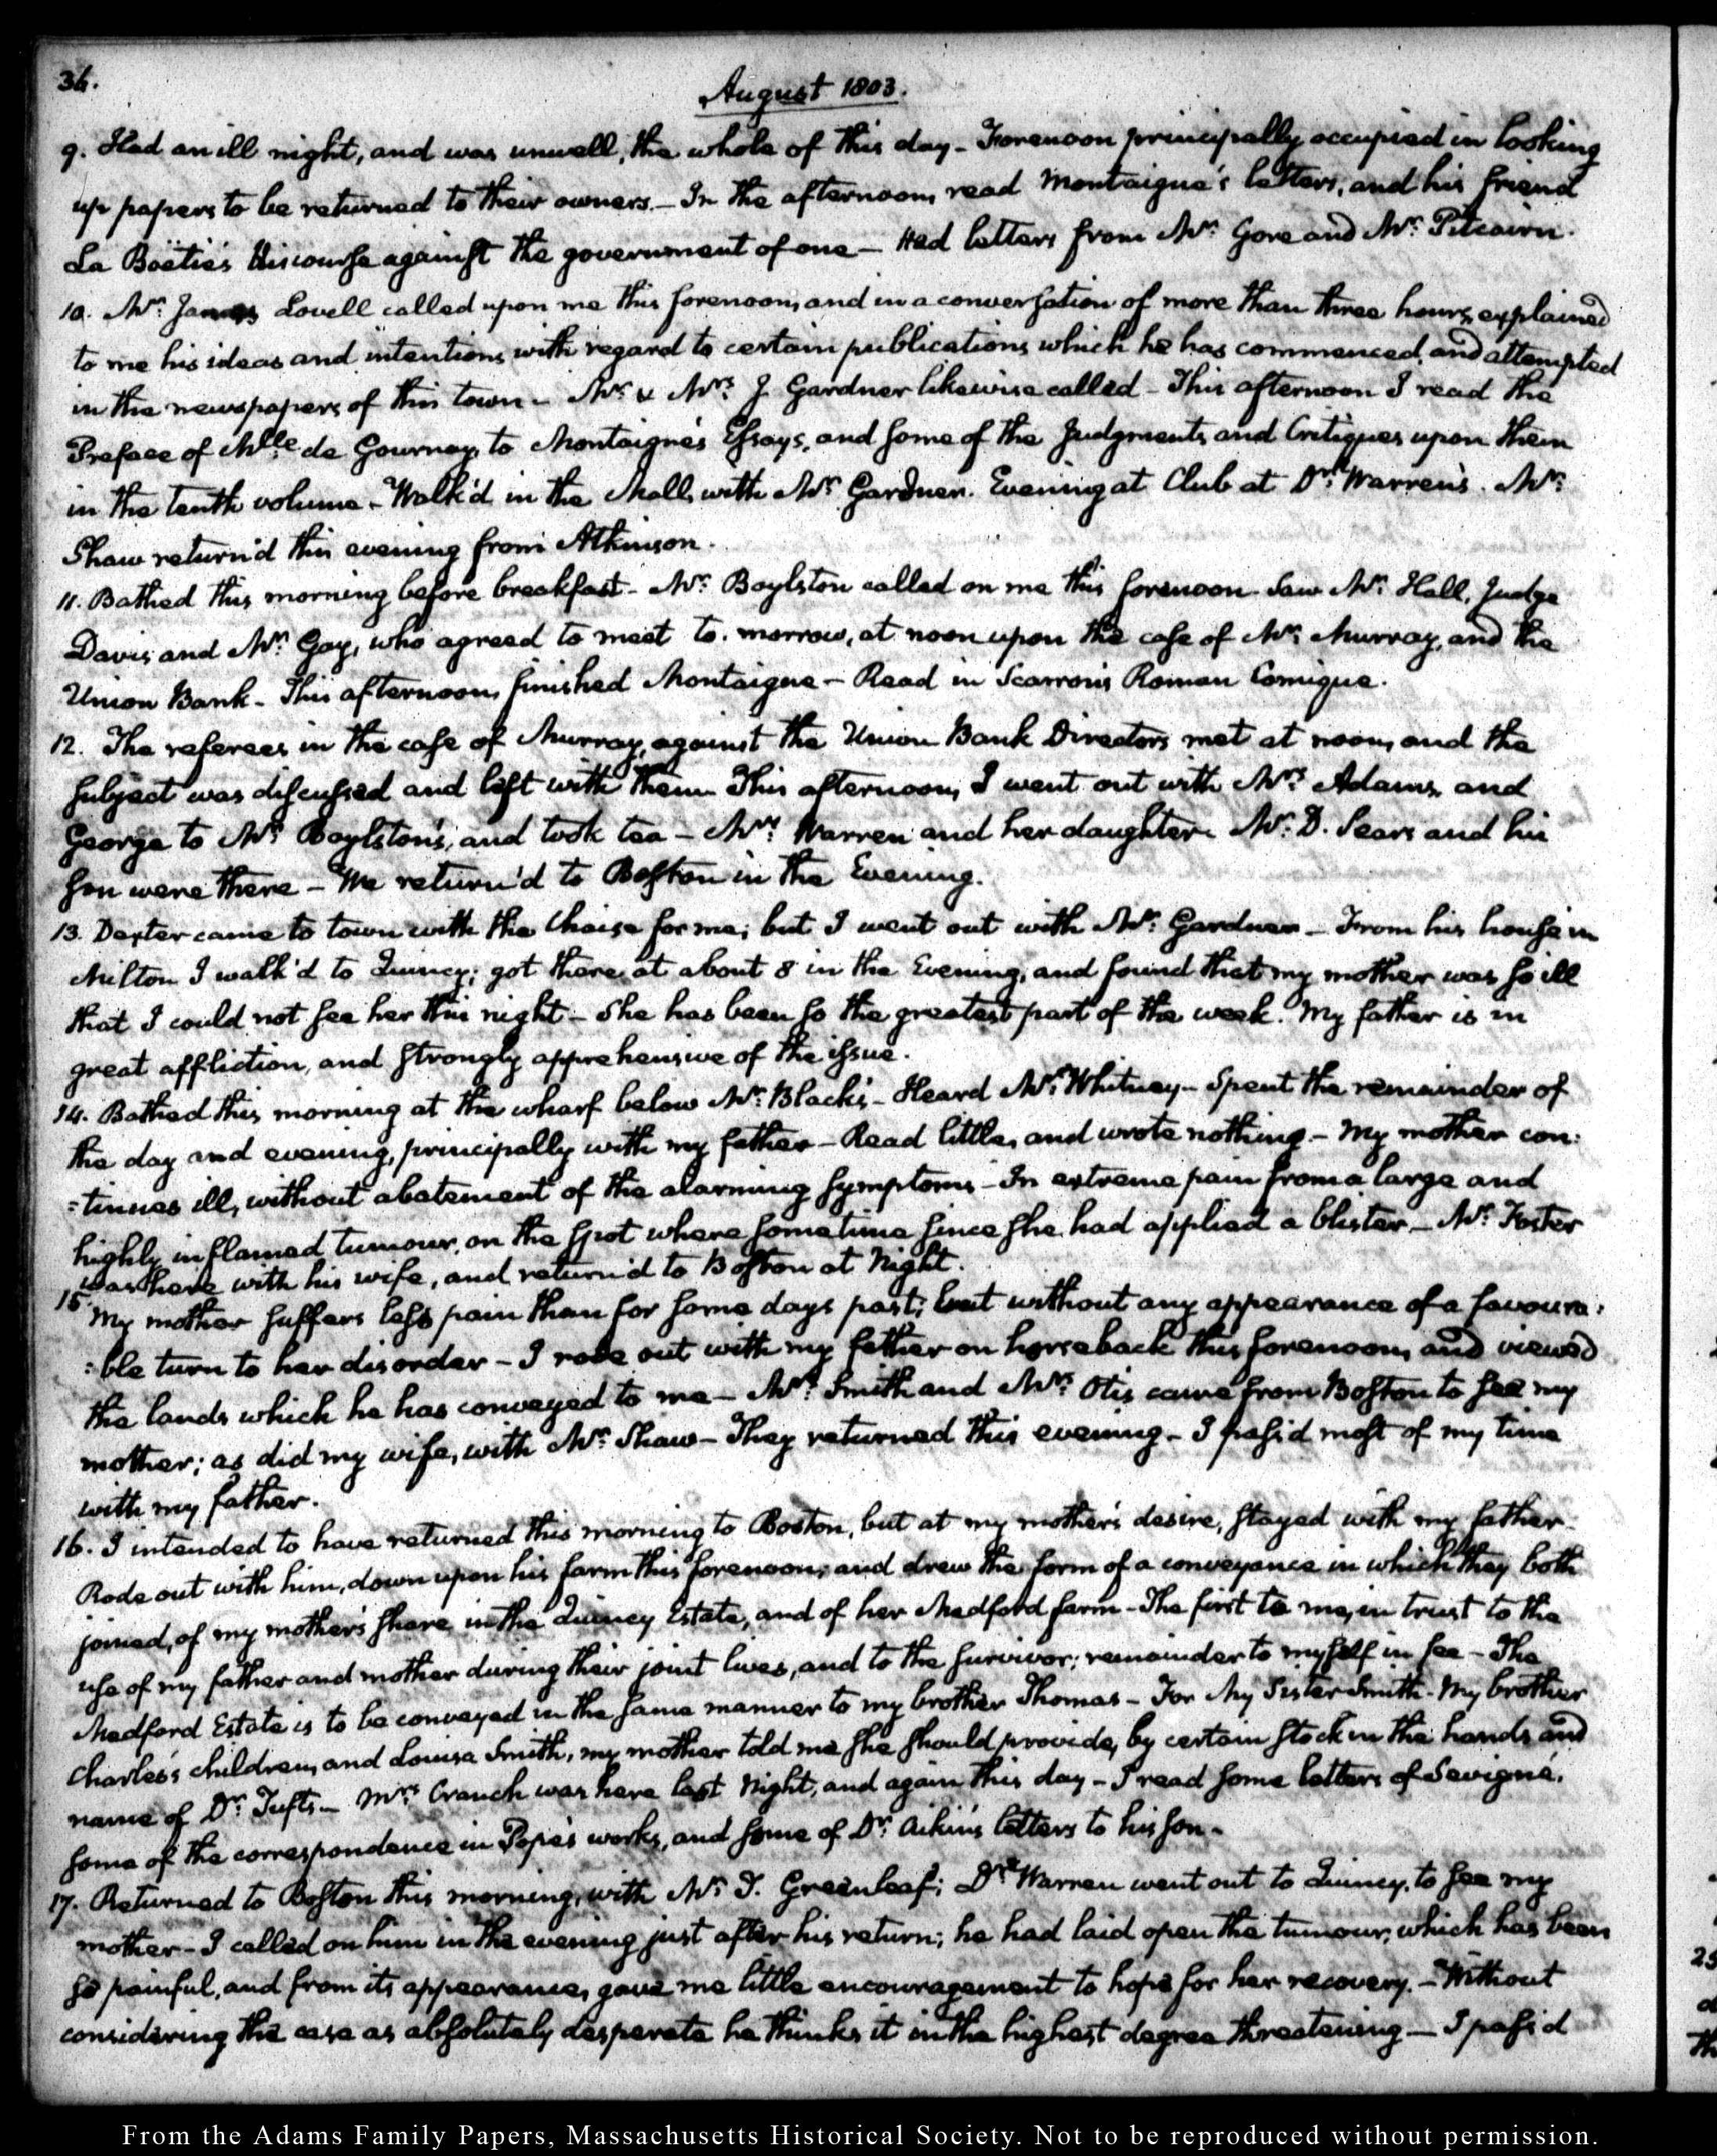 36.
August 1803.
9. Had an ill night, and was unwell, the whole of this day – Forenoon principally occupied in looking
up papers to be returned to their owners. – In the afternoon, read Montaigne's letters, and his friend
La Boëtie's discourse against the government of one – Had letters from Mr. Gore and Mr. Pitcairn.
10. Mr. James Lovell called upon me this forenoon, and in a conversation of more than three hours, explained
to me his ideas and intentions with regard to certain publications which he has commenced, and attempted
in the newspapers of this town – Mr. & Mrs. J. Gardner likewise called – This afternoon I read the
Preface of Mlle. de Gournay, to Montaigne's Essays, and some of the Judgments and Critiques upon them
in the tenth volume – Walk'd in the Mall, with Mr. Gardner. Evening at Club at Dr. Warren's. Mr.
Shaw return'd this evening from Atkinson.
11. Bathed this morning before breakfast – Mr. Boylston called on me this forenoon. Saw Mr. Hall, Judge
Davis and Mr. Gay, who agreed to meet to-morrow, at noon upon the case of Mr. Murray, and the
Union Bank – This afternoon, finished Montaigne – Read in Scarron's Roman Comique.
12. The referees in the case of Murray, against the Union Bank Directors met at noon, and the
subject was discussed and left with them. This afternoon, I went out with Mrs. Adams, and
George to Mr. Boylston's, and took tea – Mrs. Warren and her daughter. Mr. D. Sears and his
son were there – We return'd to Boston in the Evening.
13. Dexter came to town with the Chaise for me; but I went out with Mr. Gardner – From his house in
Milton I walk'd to Quincy; got there at about 8 in the Evening, and found that my mother was so ill
that I could not see her this night – She has been so the greatest part of the week. My father is in
great affliction, and strongly apprehensive of the issue.
14. Bathed this morning at the wharf below Mr. Black's – Heard Mr. Whitney – Spent the remainder of
the day and evening, principally with my father – Read little, and wrote nothing. – My mother con:
=tinues ill, without abatement of the alarming symptoms – In extreme pain from a large and
highly inflamed tumour, on the spot where sometime since she had applied a blister. – Mr. Foster
was here with his wife, and return'd to Boston at Night.
15. My mother suffers less pain than for some days past; but without any appearance of a favoura:
:ble turn to her disorder – I rode out with my father on horseback this forenoon, and viewed
the lands which he has conveyed to me – Mrs. Smith and Mrs. Otis came from Boston to see my
mother; as did my wife, with Mr. Shaw – They returned this evening – I pass'd most of my time
with my father.
16. I intended to have returned this morning to Boston, but at my mother's desire, stayed with my father.
Rode out with him, down upon his farm this forenoon; and drew the form of a conveyance in which they both
joined, of my mother's share in the Quincy Estate, and of her Medford farm – The first to me, in trust to the
use of my father and mother during their joint lives, and to the survivor; remainder to myself in fee – The
Medford Estate is to be conveyed in the same manner to my brother Thomas – For My Sister Smith – My brother
Charles's children, and Louisa Smith, my mother told me she should provide, by certain stock in the hands and
name of Dr. Tufts – Mrs. Cranch was here last Night, and again this day – I read some letters of Sevigné,
some of the correspondence in Pope's works, and some of Dr. Aikin's letters to his son –
17. Returned to Boston this morning, with Mr. T. Greenleaf; Dr. Warren went out to Quincy, to see my
mother – I called on him in the evening just after his return; he had laid open the tumour, which has been
so painful, and from its appearance, gave me little encouragement to hope for her recovery. – Without
considering the case as absolutely desperate he thinks it in the highest degree threatening – I pass'd
25
From the Adams Family Papers, Massachusetts Historical Society. Not to be reproduced without permission.